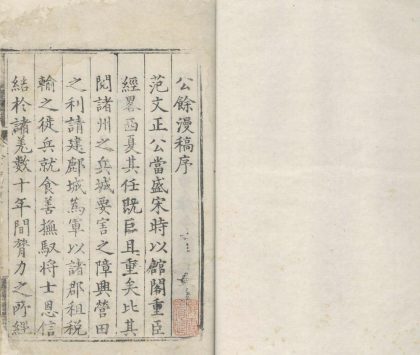 公餘漫稿序
范文正公當盛宋時以館閣重臣
經畧西夏其任既巨且重矣比其
閱諸州之兵城要害之障興營田
之利請建鄜城爲軍以諸郡租稅
輸之徙兵就食善撫馭將士恩信
結於諸羌數十年間膂力之所經